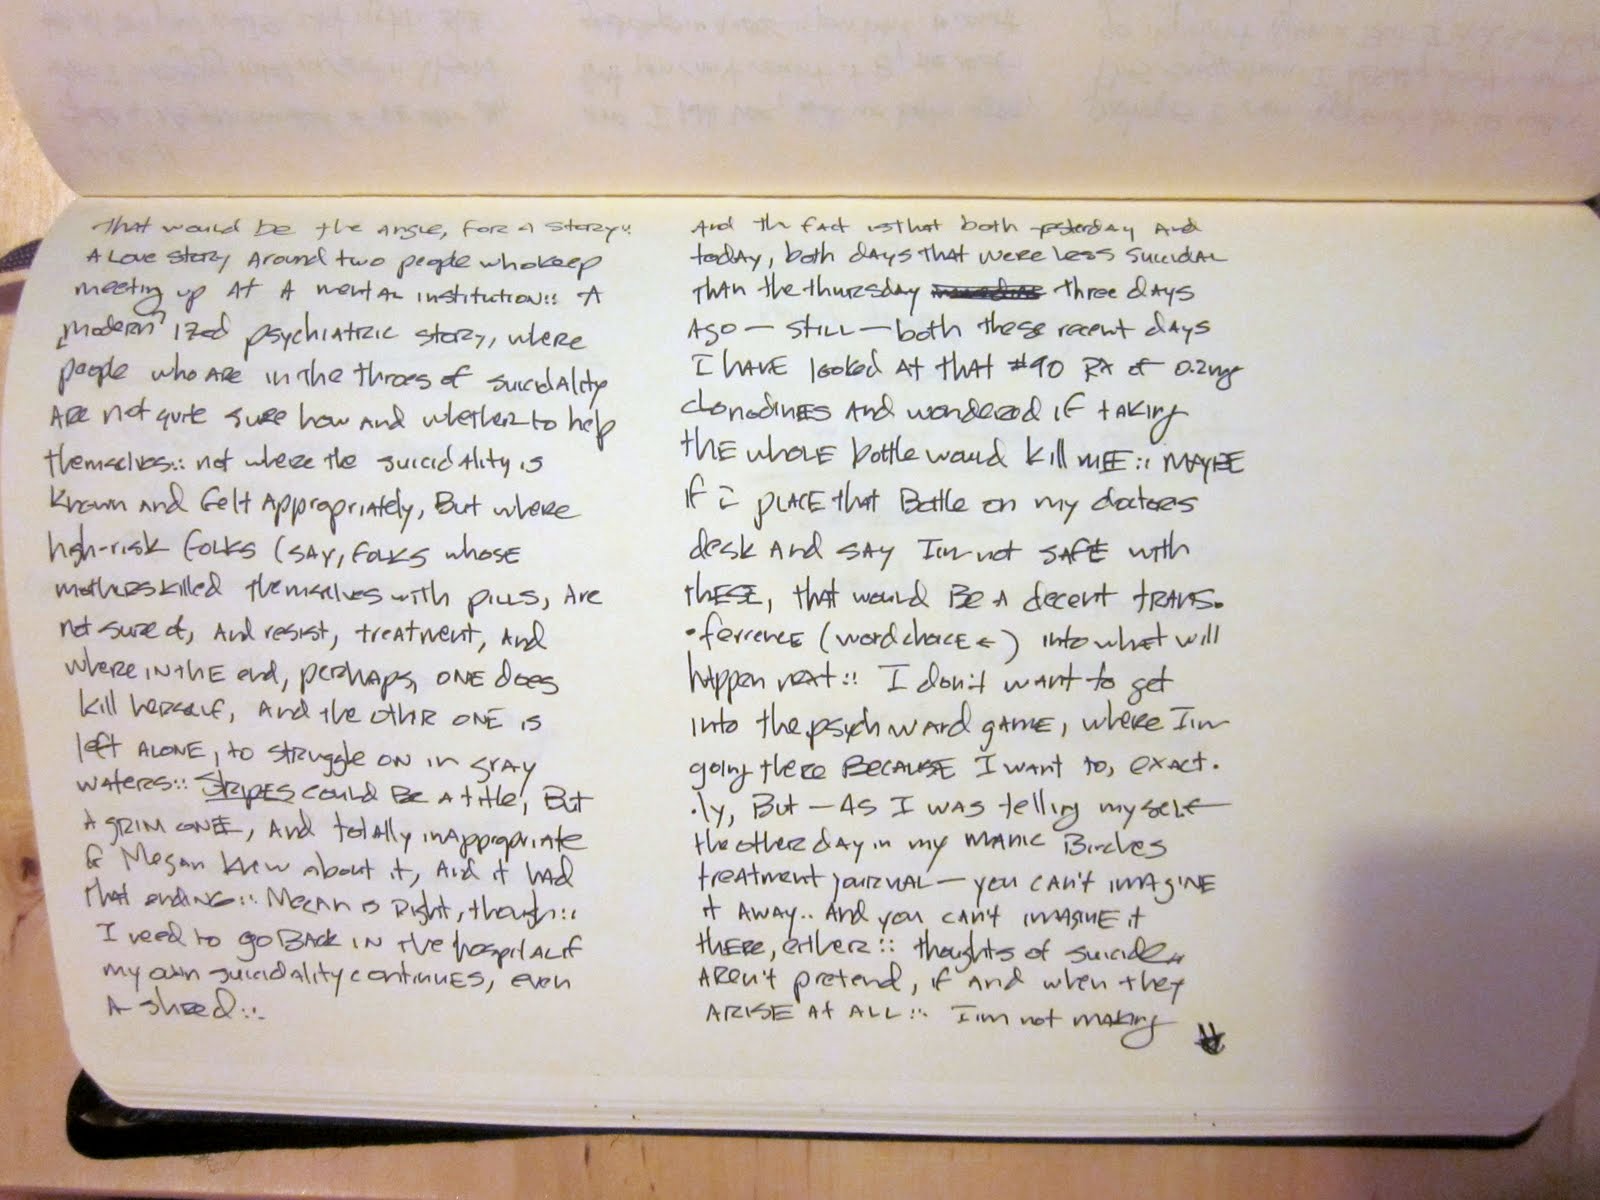 That would be the angle, for a story::
A Love story around two people who keep
meeting up at a mental institution:: A
modern'ized psychiatric story, where
people who are in the throes of suicidality
are not quite sure how and whether to help
themselves:: not where the suicidality is
known and felt appropriately, But where
high-risk folks (say, folks whose
mothers killed themselves with pills, are
not sure of, and resist, treatment, and
where in the end, perhaps, one does
kill herself, and the othr one is
left alone, to struggle on in gray
waters:: Stripes could be a title, But
a grim one, and totally inappropriate
Megan knew about it, and it had
that ending:: Megan is Right, though::
I need to go Back in the hospital if
my own suicidality continues, even
a shred::
And the fact is that both yesterday and
today, both days that were less suicidal
than the thursday three days
ago — still — both these recent days
I have looked at that #90 RX of 0.2mg
clonodines and wondered if taking
the whole bottle would kill mee:: maybe
if i place that Bottle on my doctors
desk and say I'm not safe with
these, that would Be a decent trans.
.ference (word choice ←) into what will
happen next:: I don't want to get
into the psych ward game, where I'm
going there Because I want to, exact.
.ly, But — as I was telling myself
the other day in my manic Birches
treatment journal — you can't imagine
it away.. And you can't imagine it
there, either:: thoughts of suicide
aren't pretend, if and when they
arise at all:: I'm not making